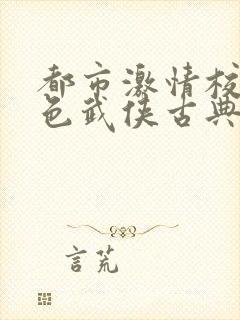 都市激情校
色武侠古典
言荒